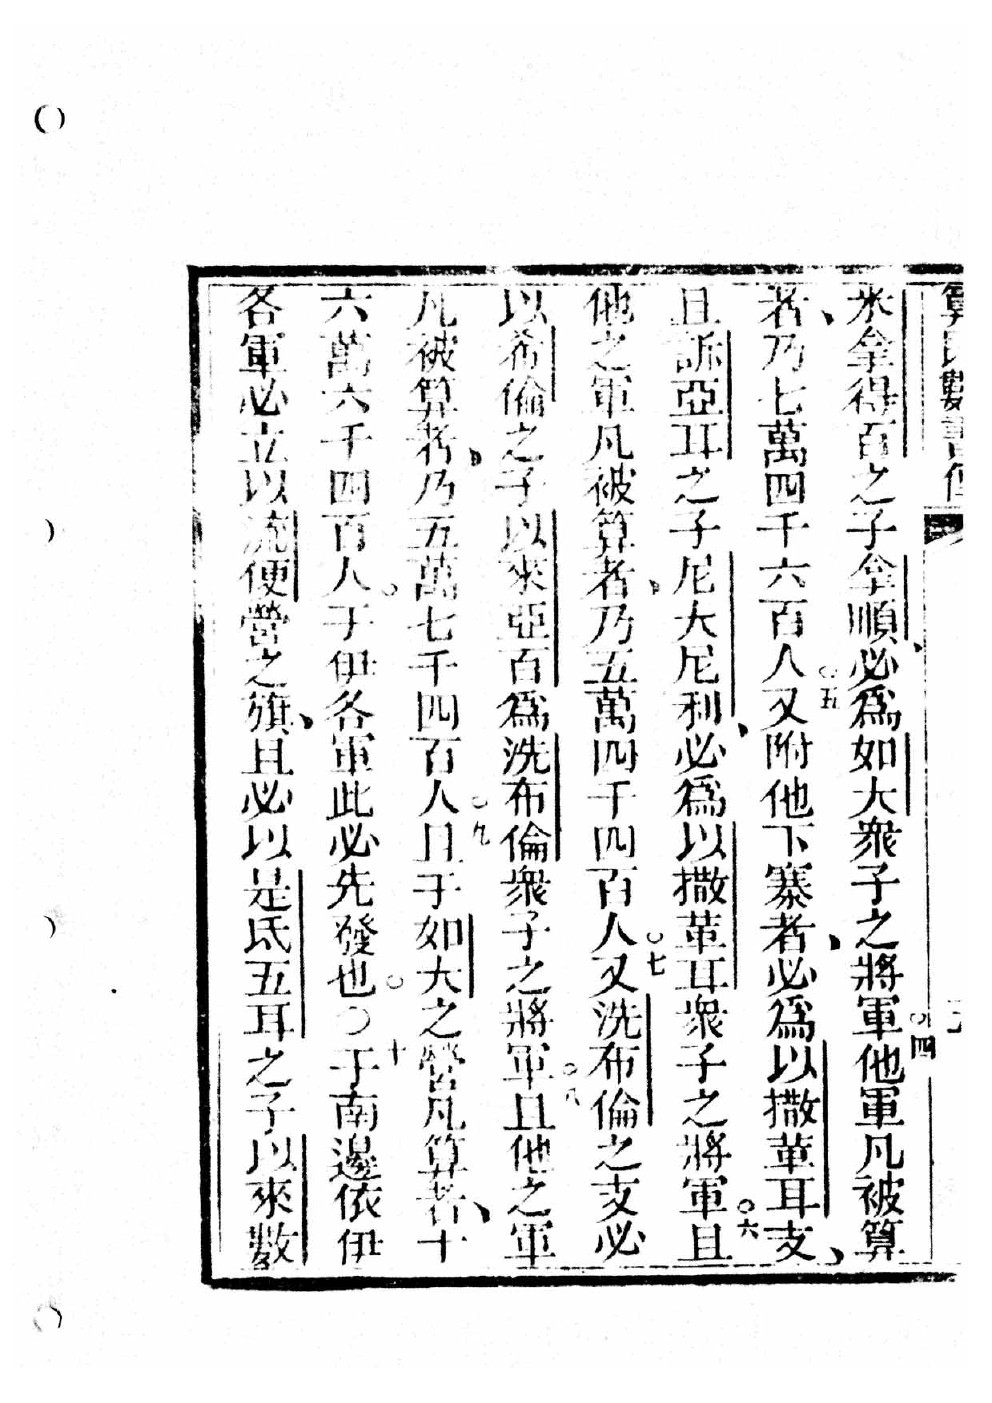 算民數書傳
米拿得百之子拿順、必為如大衆子之將軍○四他軍凡被算
者、乃七萬四千六百人○五又附他下寨者、必為以撒革耳支、
且訴亞耳之子尼大尼利、必為以撒革耳衆子之將軍○六且
他之軍凡被算者、乃五萬四千四百人○七又洗布倫之支必
以希倫之子以來亞百爲洗布倫衆子之將軍○八且他之軍
凡被算者、乃五萬七千四百人○九且于如大之營凡算者、十
六萬六千四百人。于伊各軍此必先發也○○十于南邊依伊
各軍必立以流便營之旗、且必以是氐五耳之子以來數